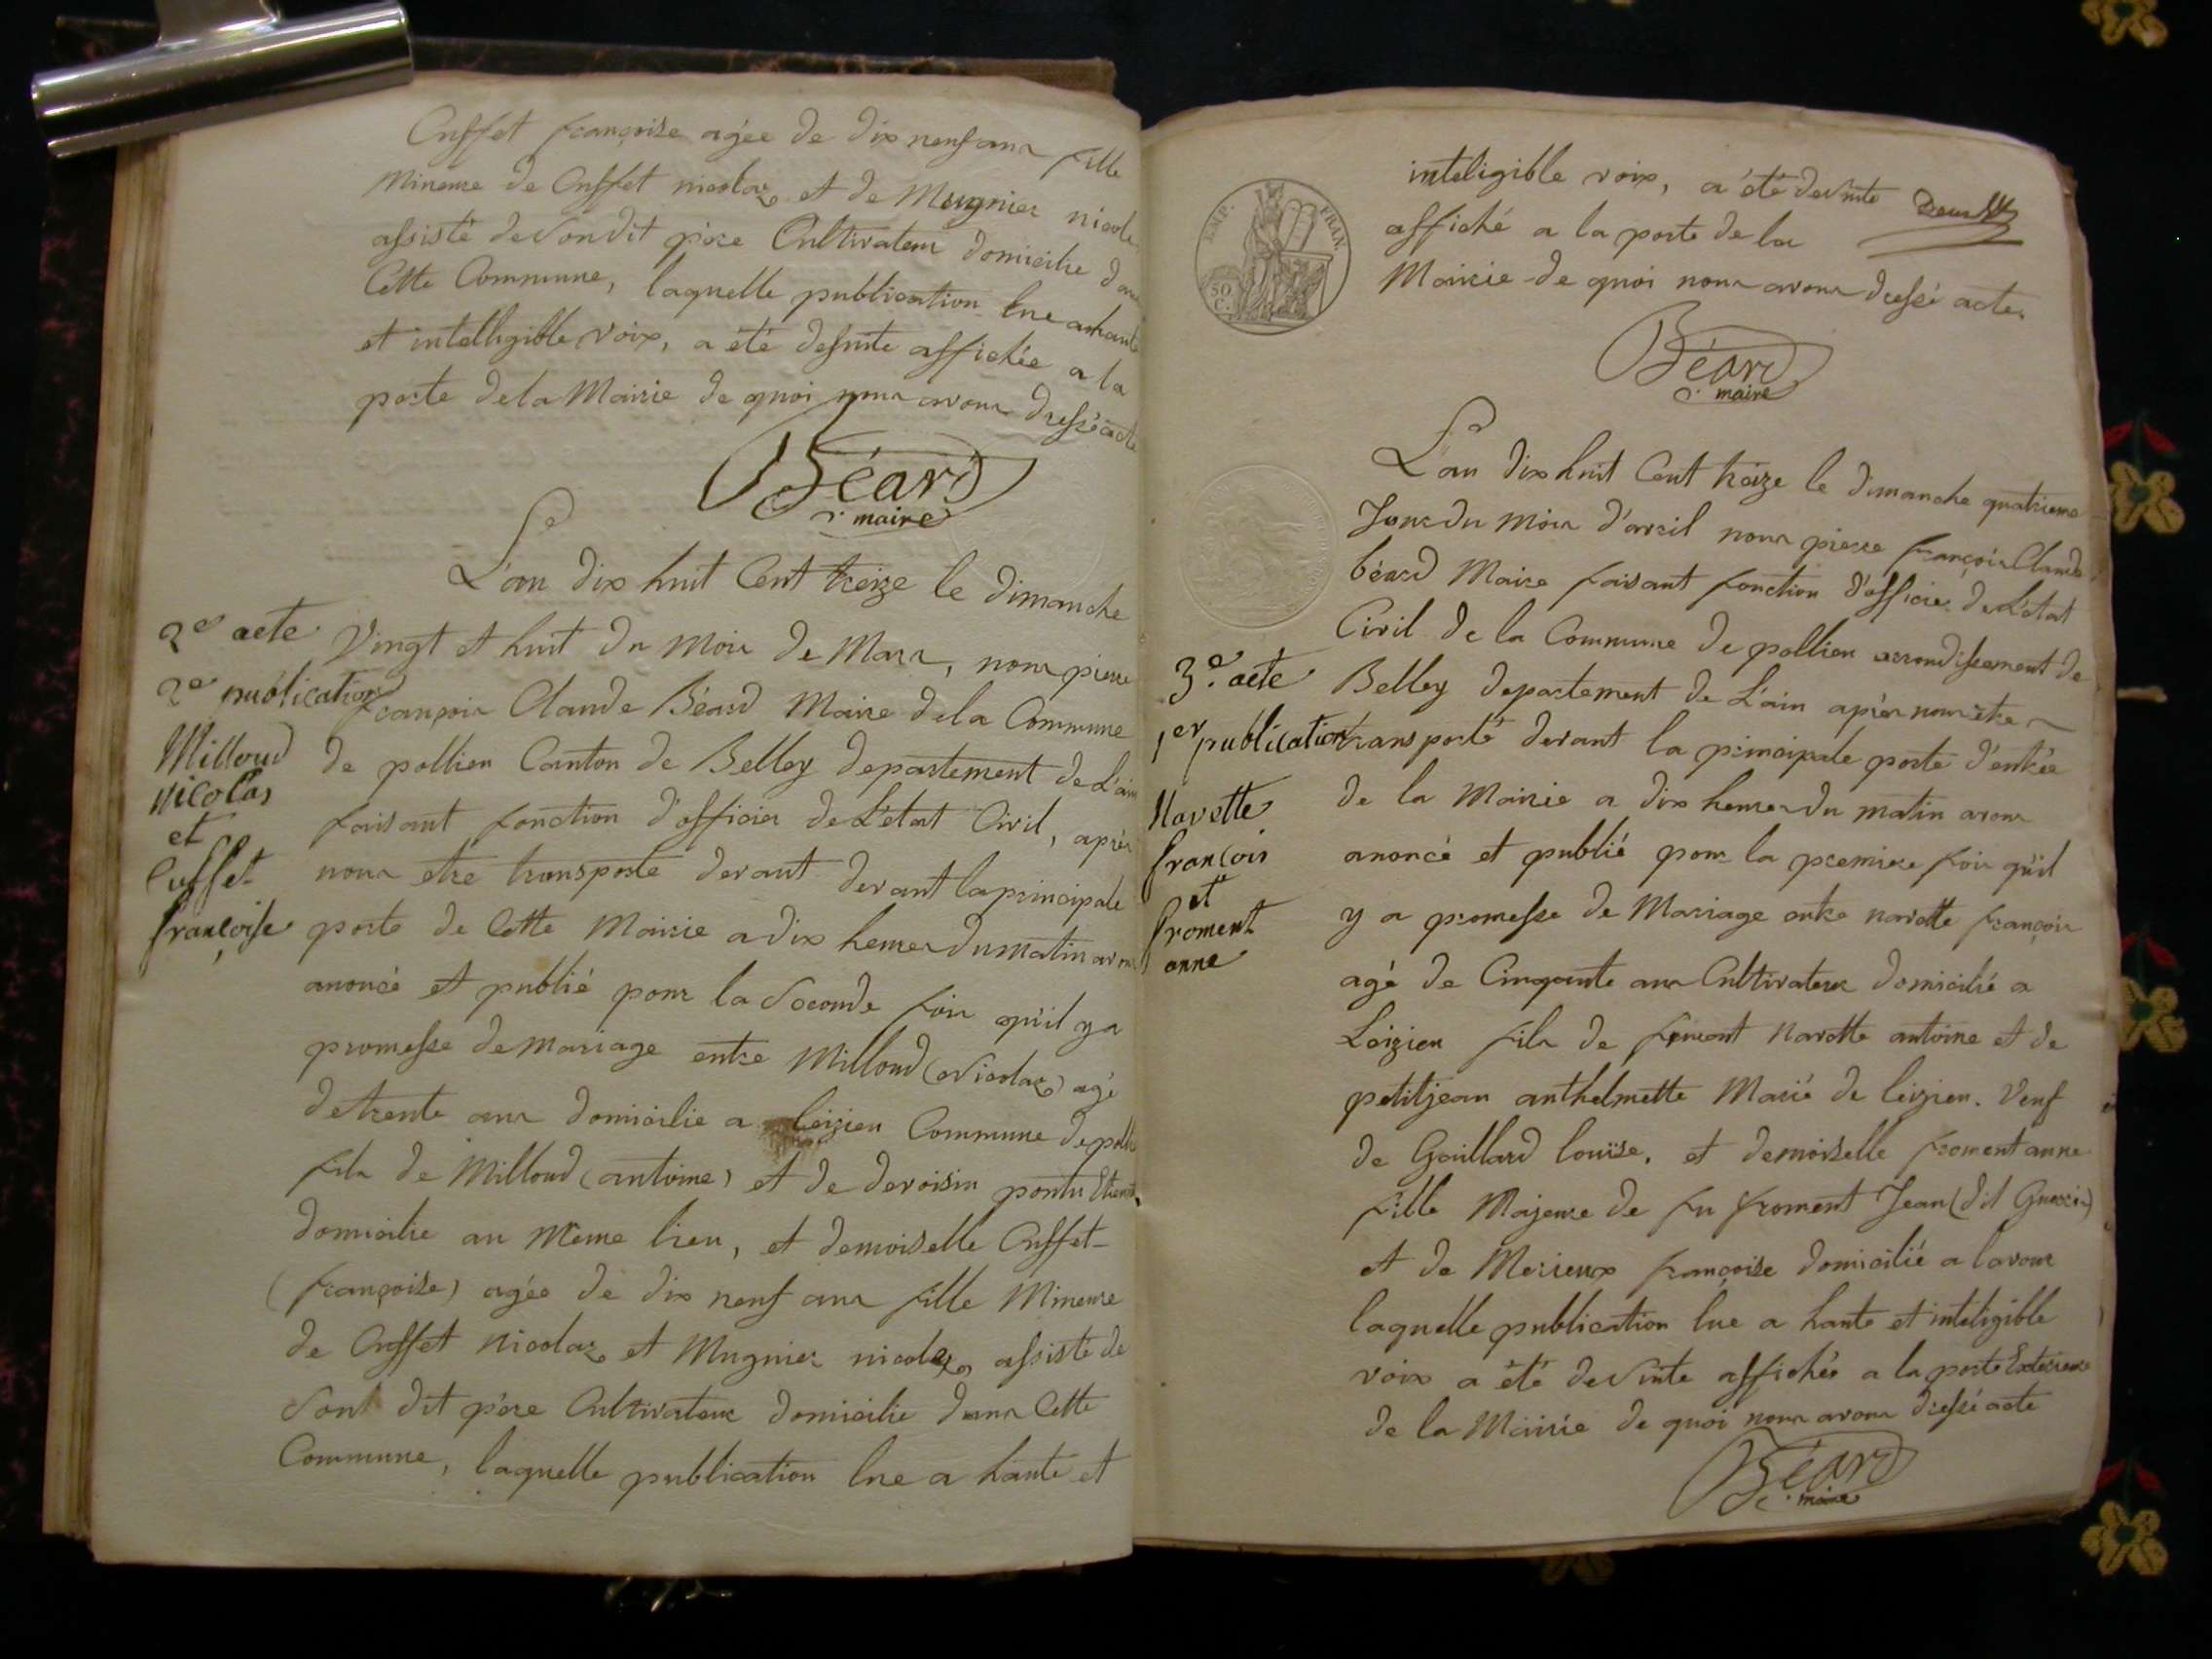 Cuffet françoise agée de dix neuf ans fille
Mineure de Cuffet nicolas et de Mugnier nicole
assisté de son dit père Cultivateur domicilie dans
Cette Commune, laquelle publication lue a haute
et intelligible voix, a été desuite affichée a la
porte de la Mairie de quoi nous avons dressé acte
Béard
maire
L'an dix huit Cent treize le dimanche
2e acte
Vingt et huit du Mois de Mars, nous pierre
2e publication
françois Claude Béard Maire de la Commune
Milloud
de pollieu Canton de Belley departement de L'ain
Nicolas
et
faisant fonction d'officier de L'état Civil, après
Cuffet
nous etre transporté devant devant la principale
françoise
porte de Cette Mairie a dix heures du matin avons
anoncé et publié pour la Seconde fois qu'il y a
promesse de mariage entre Milloud (Nicolas) agé
de trente ans domicilie a leizieu Commune de pollieu
fils de Milloud (antoine) et de devoisin pontu
domicilie au Meme lieu, et demoiselle Cuffet
(françoise) agée de dix neuf ans fille Mineure
de Cuffet Nicolas et Mugnier nicole, assisté de
Sont dit père Cultivateur domicilie dans Cette
Commune, laquelle publication lue a haute et
inteligible voix, a été desuite
affiché a la porte de la
Mairie de quoi nous avons dressé acte.
EMP. FRAN.
50 C.
Béard
maire
L'an dix huit Cent treize le dimanche quatrieme
Jour du Mois d'avril nous pierre françois Claude
béard Maire faisant fonction d'officier de L'état
Civil de la Commune de pollieu arrondissement de
3e acte
Belley departement de L'ain après nous etre
1er publication
transporté devant la principale porte d'entrée
Navette
de la Mairie a dix heures du matin avons
françois
anoncé et publié pour la premiere fois qu'il
et
froment
y a promesse de Mariage entre navette françois
anne
agé de Cinquante ans Cultivateur domicilié a
Leizieu fils de Navette antoine et de
petitjean anthelmette Marié de leizieu. Veuf
de Gaillard louïse, et demoiselle froment anne
fille Majeure de fu froment Jean (dit
et de Merieux françoise domicilié a lavour
laquelle publication lue a haute et inteligible
voix a été desuite affichée a la porte Exterieure
de la Mairie de quoi nous avons dressé acte
Béard
maire